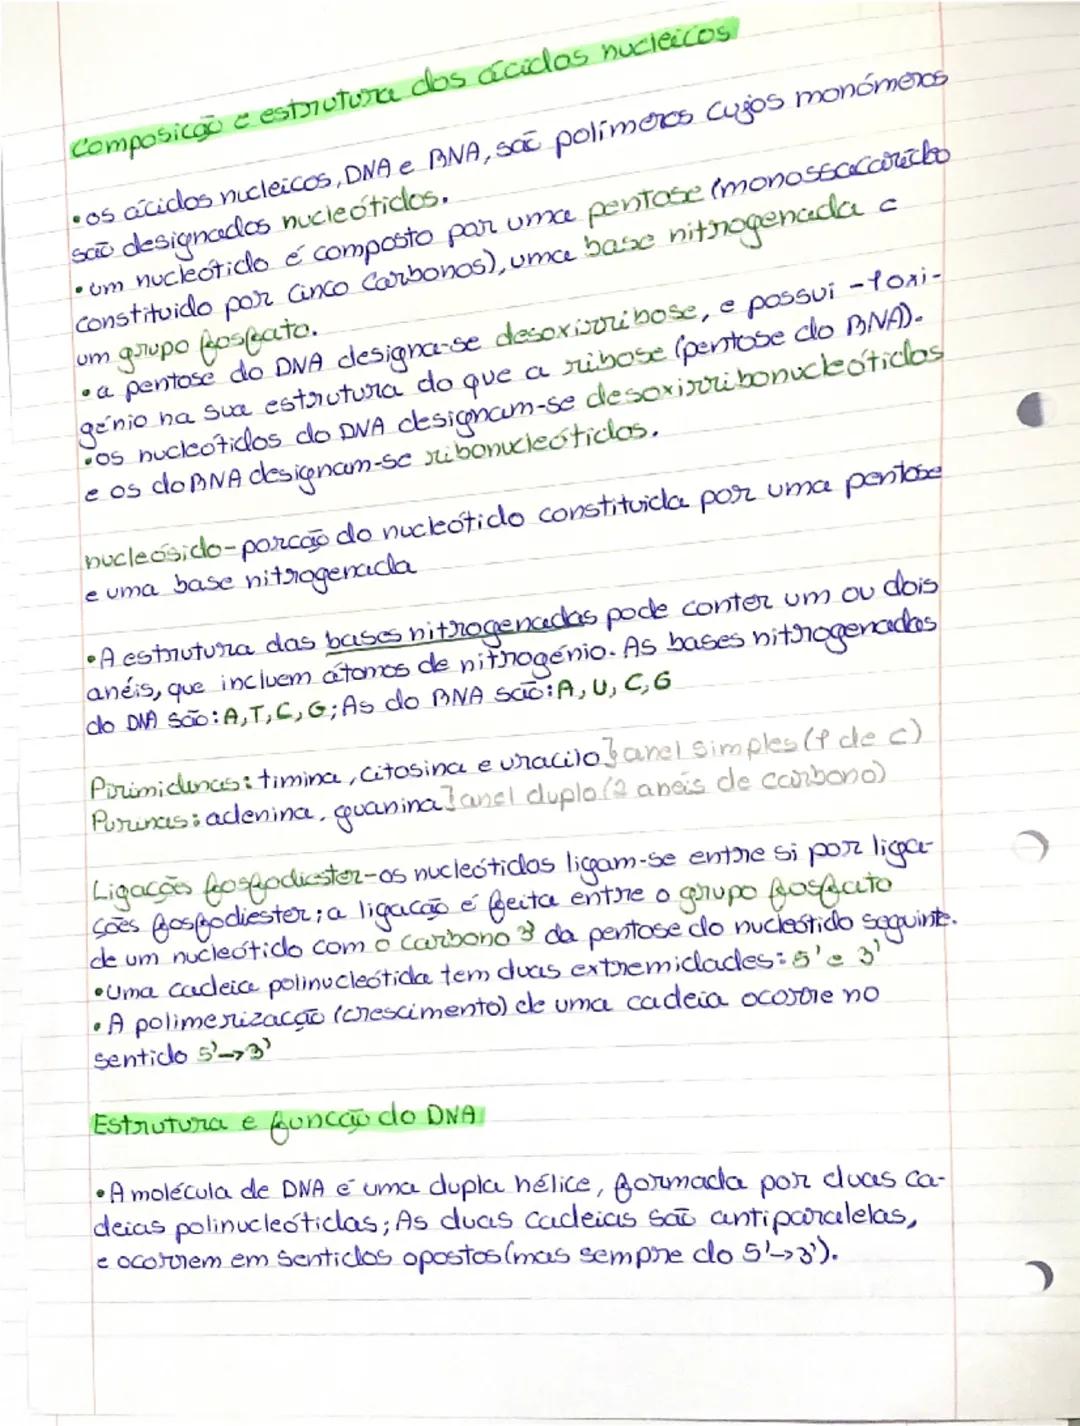 Composição e estrutura dos ácidos nucleicos
• os ácidos nucleicos, DNA e RNA, são polímeros cujos monómeros
são designados nucleótidos.
• um nucleótido é composto por uma pentose (monossacarídeo
constituido por cinco carbonos), uma base nitrogenada e
um grupo fosfato.
• a pentose do DNA designa-se desoxirribose, e possui -1 oxi-
génio na sua estrutura do que a ribose (pentose do RNA).
• os nucleótidos do DNA designam-se desoxirribonucleótidos
e os do RNA designam-se ribonucleótidos.
nucleósido - porção do nucleótido constituida por uma pentose
e uma base nitrogenada
• A estrutura das bases nitrogenadas pode conter um ou dois
anéis, que incluem átomos de nitrogénio. As bases nitrogenadas
do DNA são: A, T, C, G; As do RNA são: A, U, C, G
Pirimidinas: timina, citosina e uracilo } anel simples (1 de c)
Purinas: adenina, guanina } anel duplo (2 anéis de carbono)
Ligações fosfodiester - os nucleótidos ligam-se entre si por liga-
ções fosfodiester; a ligação é feita entre o grupo fosfato
de um nucleótido com o carbono 3' da pentose do nucleótido seguinte.
• Uma cadeia polinucleótida tem duas extremidades: 5' e 3'
• A polimerização (crescimento) de uma cadeia ocorre no
sentido 5'→3'
Estrutura e função do DNA
• A molécula de DNA é uma dupla hélice, formada por duas ca-
deias polinucleótidas; As duas cadeias são antiparalelas,
e ocorrem em sentidos opostos (mas sempre do 5'→3').